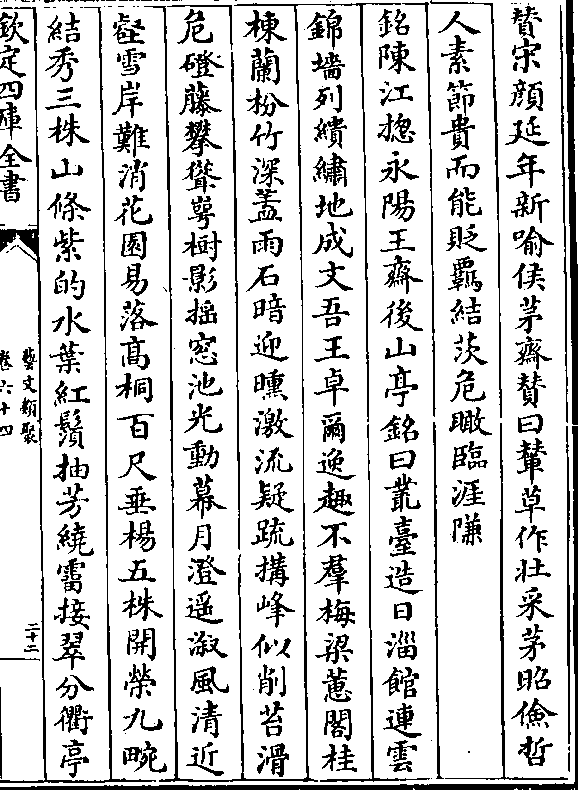 贊宋顔延年新喻侯茅齋贊曰葺草作壯采茅昭儉哲
人素節貴而能貶覊結茨危瞰臨涯隒
銘陳江揔永陽王齋後山亭銘曰叢臺造日淄館連雲
錦墻列繢繡地成文吾王卓爾逸趣不羣梅梁蕙閣桂
棟蘭枌竹深蓋雨石暗迎曛激流疑疏搆峰似削苔滑
危磴藤攀聳崿樹影揺窓池光動幕月澄遥淑風清近
壑雪岸難消花園易落髙桐百尺垂楊五株開榮九畹
結秀三株山條紫的水葉紅鬚抽芳繞霤接翠分衢亭
欽定四庫全書
藝文類聚
卷六十四
二十二